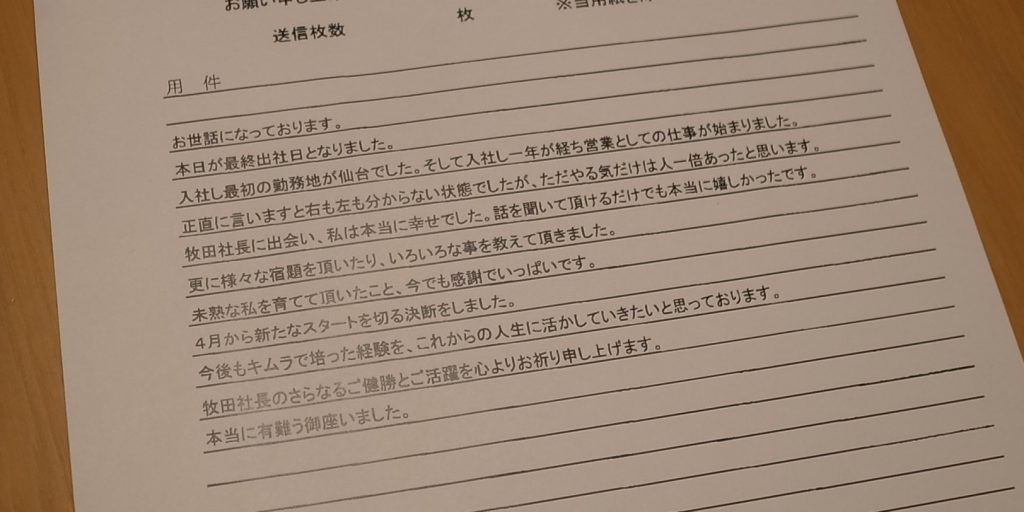 お願い申し上
送信枚数 枚 ※当用紙を
用 件
お世話になっております。
本日が最終出社日となりました。
入社し最初の勤務地が仙台でした。そして入社し一年が経ち営業としての仕事が始まりました。
正直に言いますと右も左も分からない状態でしたが、ただやる気だけは人一倍あったと思います。
牧田社長に出会い、私は本当に幸せでした。話を聞いて頂けるだけでも本当に嬉しかったです。
更に様々な宿題を頂いたり、いろいろな事を教えて頂きました。
未熟な私を育てて頂いたこと、今でも感謝でいっぱいです。
4月から新たなスタートを切る決断をしました。
今後もキムラで培った経験を、これからの人生に活かしていきたいと思っております。
牧田社長のさらなるご健勝とご活躍を心よりお祈り申し上げます。
本当に有難う御座いました。